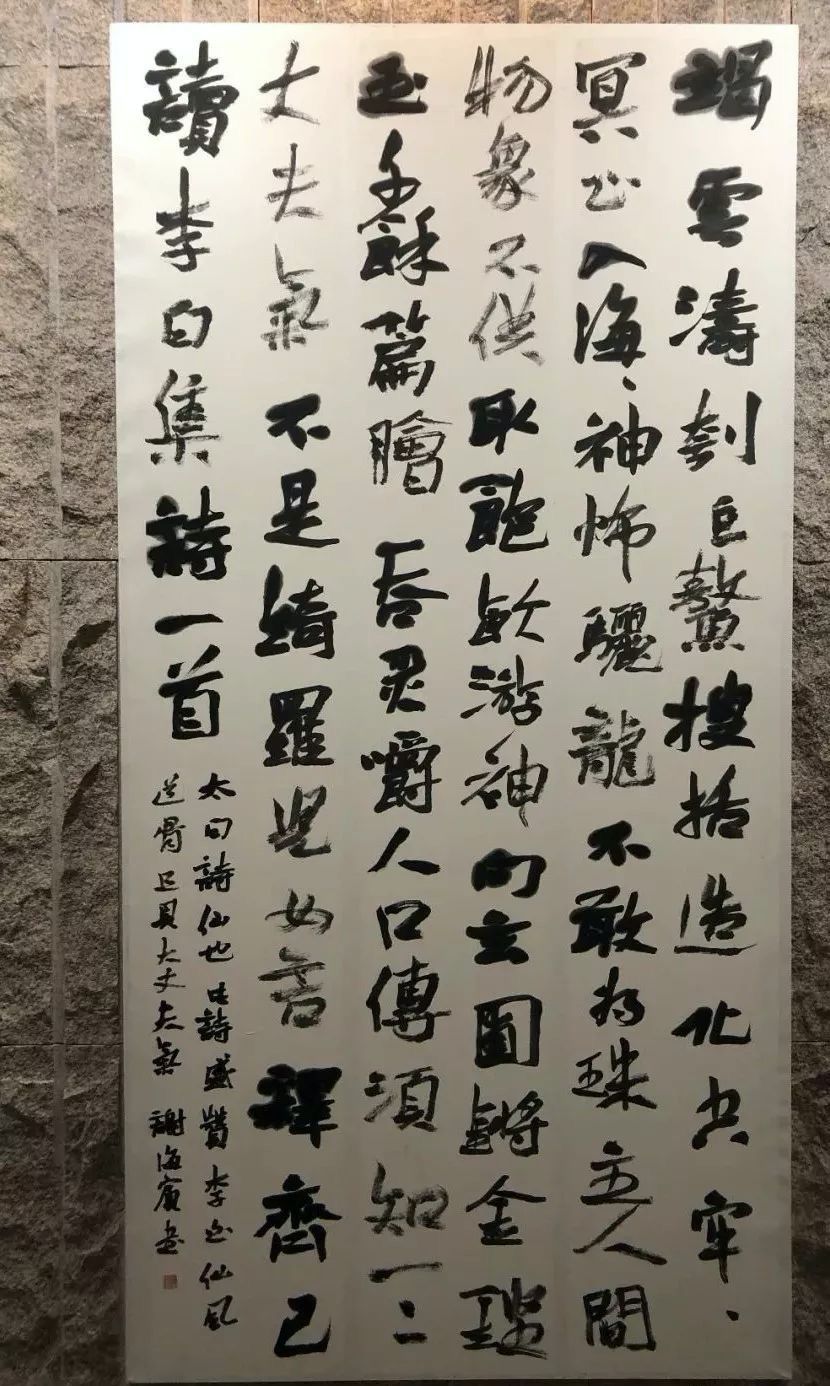 竭雲濤刳巨鰲搜括造化空牢、
冥心入海、神怖驪龍不敢为珠主人間
物象不供取飽飲游神向玄圃鏘金鏗
玉千餘篇膾吞炙嚼人口傳須知一二
丈夫氣不是綺羅兒女言釋齊己
讀李白集詩一首
太白詩仙也此詩盛贊李白仙風
道骨且具大丈夫氣 謝海賓書